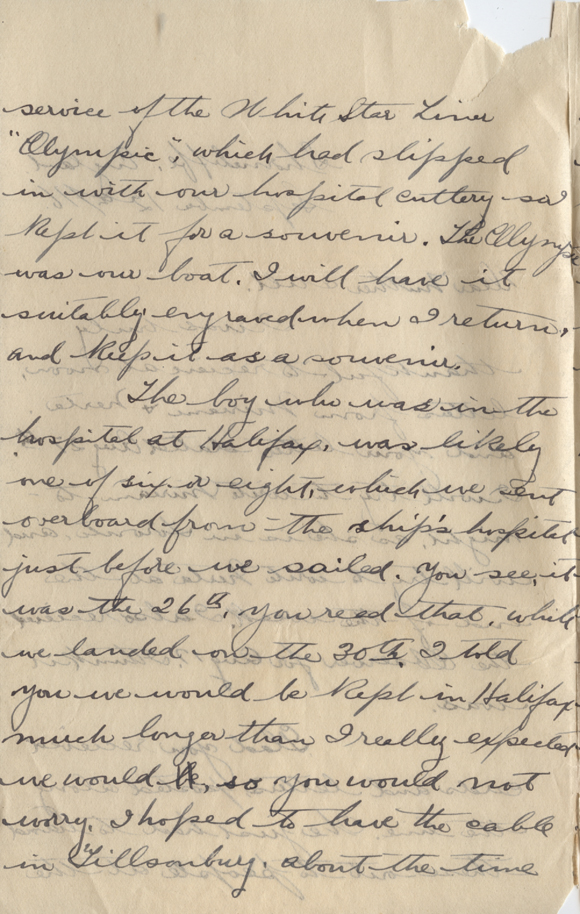 service of the White Star Liner
"Olympic", which had slipped
in with our hospital cutlery so I
kept it for a souvenir. The Olympic
was our boat. I will have it
suitably engraved when I return,
and keep it as a souvenir.
The boy who was in the
hospital at Halifax, was likely
one of six or eight, which we sent
overboard from the ship's hospital
just before we sailed. You see, it
was the 26th, you read that, while
we landed on the 30th. I told
you we would be kept in Halifax
much longer than I really expected
we would be, so you would not
worry. I hoped to have the cable
in Tillsonburg, about the time